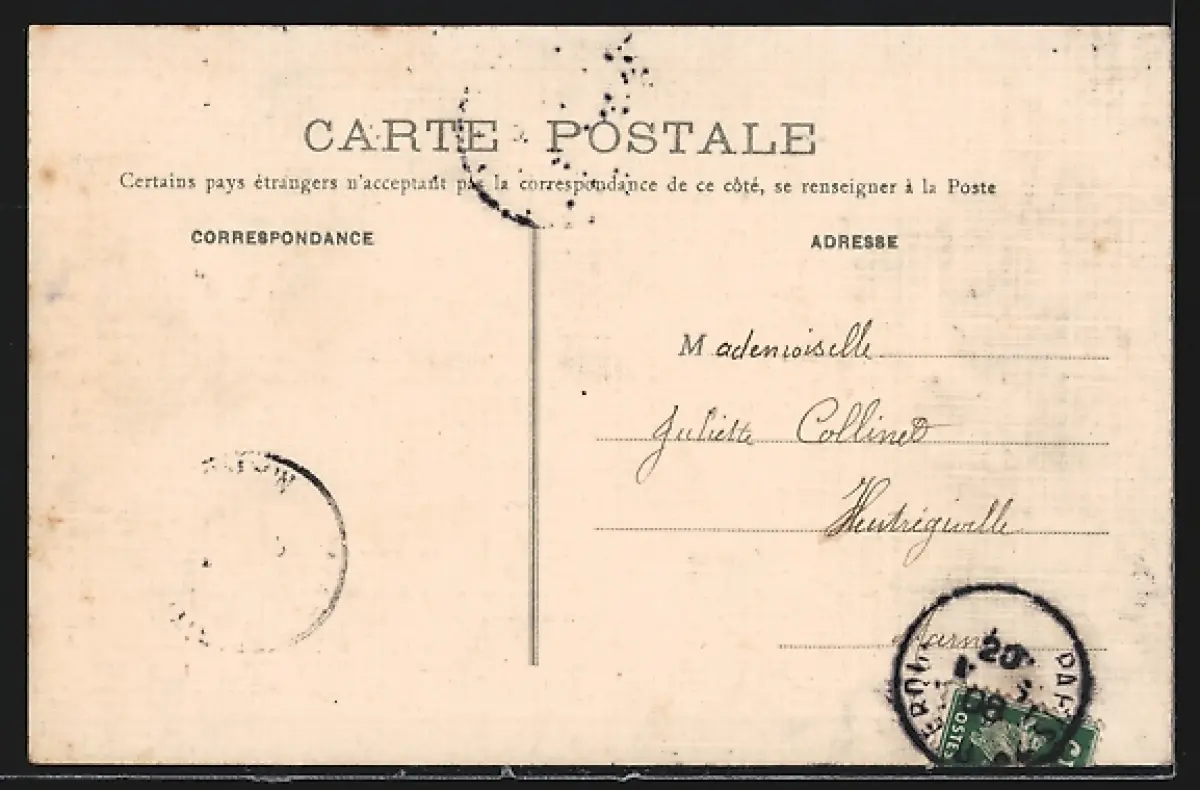 CARTE POSTALE
Certains pays étrangers n'acceptant pas la correspondance de ce côté, se renseigner à la Poste
CORRESPONDANCE
ADRESSE
Mademoiselle
Juliette Collinet
Heutrégiville
Marne
20
08
OSTES